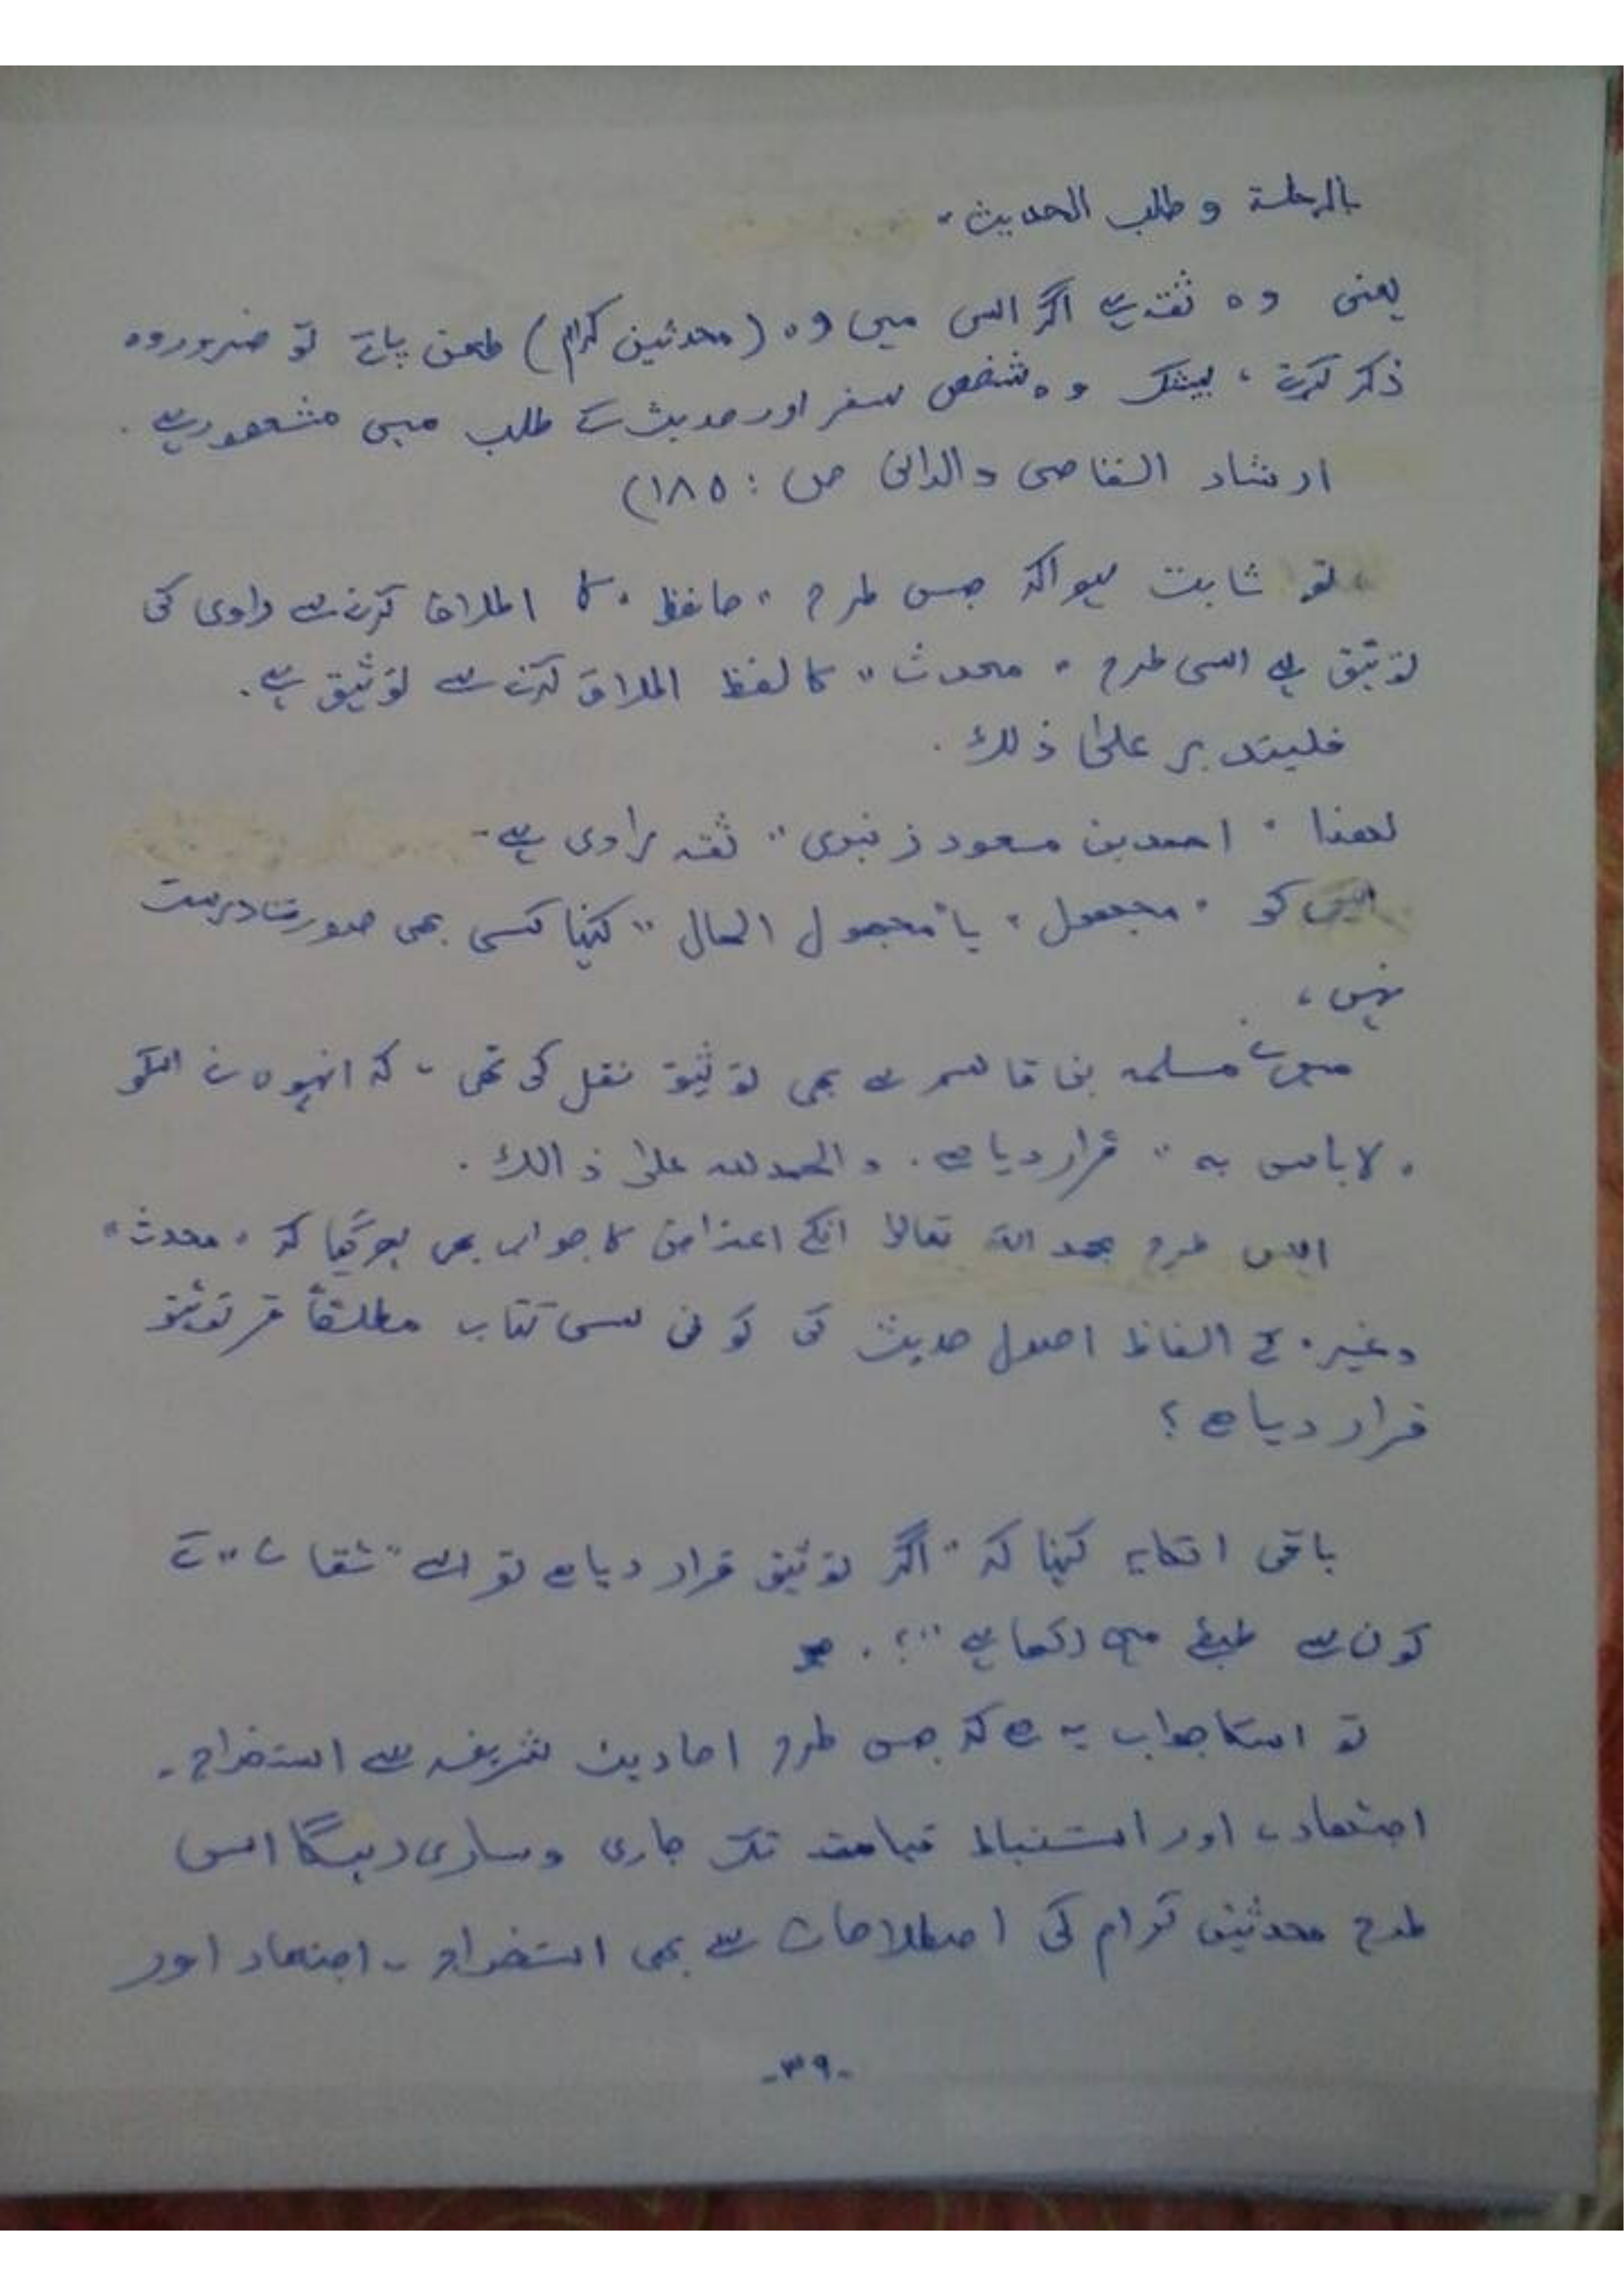 بالرحلة و طلب الحدیث"
یعنی وہ ثقہ ہے اگر اس میں وہ (محدثین کرام) طعن پاتے تو ضرور وہ
ذکر کرتے ، بیشک وہ شخص سفر اور حدیث کے طلب میں مشھور ہے ۔
ارشاد القاصی والدانی ص : ١٨٥)
تو ثابت ہوا کہ جس طرح " حافظ " کا اطلاق کرنے سے راوی کی
توثیق ہے اسی طرح " محدث " کا لفظ اطلاق کرنے سے توثیق ہے ۔
فلیتدبر علیٰ ذلك ۔
لھذا " احمد بن مسعود زنبری " ثقہ راوی ہے ۔
اس کو " مجھول " یا " مجھول الحال " کہنا کسی بھی صورت درست
نہیں ،
میں نے مسلمہ بن قاسم سے بھی توثیق نقل کی تھی ، کہ انہوں نے اسکو
" لا باس به " قرار دیا ہے . والحمدللہ علیٰ ذالك ۔
اس طرح بحمد اللہ تعالیٰ انکے اعتراض کا جواب بھی ہو گیا کہ " محدث "
وغیرہ کے الفاظ اصول حدیث کی کونسی کتاب مطلقاً توثیق
قرار دیا ہے ؟
باقی انکا یہ کہنا کہ " اگر توثیق قرار دیا ہے تو اسے " ثقات " کے
کون سے طبقے میں رکھا ہے "؟ .
تو اسکا جواب یہ ہے کہ جس طرح احادیث شریفہ سے استخراج ۔
اجتھاد ، اور استنباط قیامت تک جاری و ساری رہیگا اس
طرح محدثین کرام کی اصطلاحات سے بھی استخراج ۔ اجتھاد اور
-٣٩-